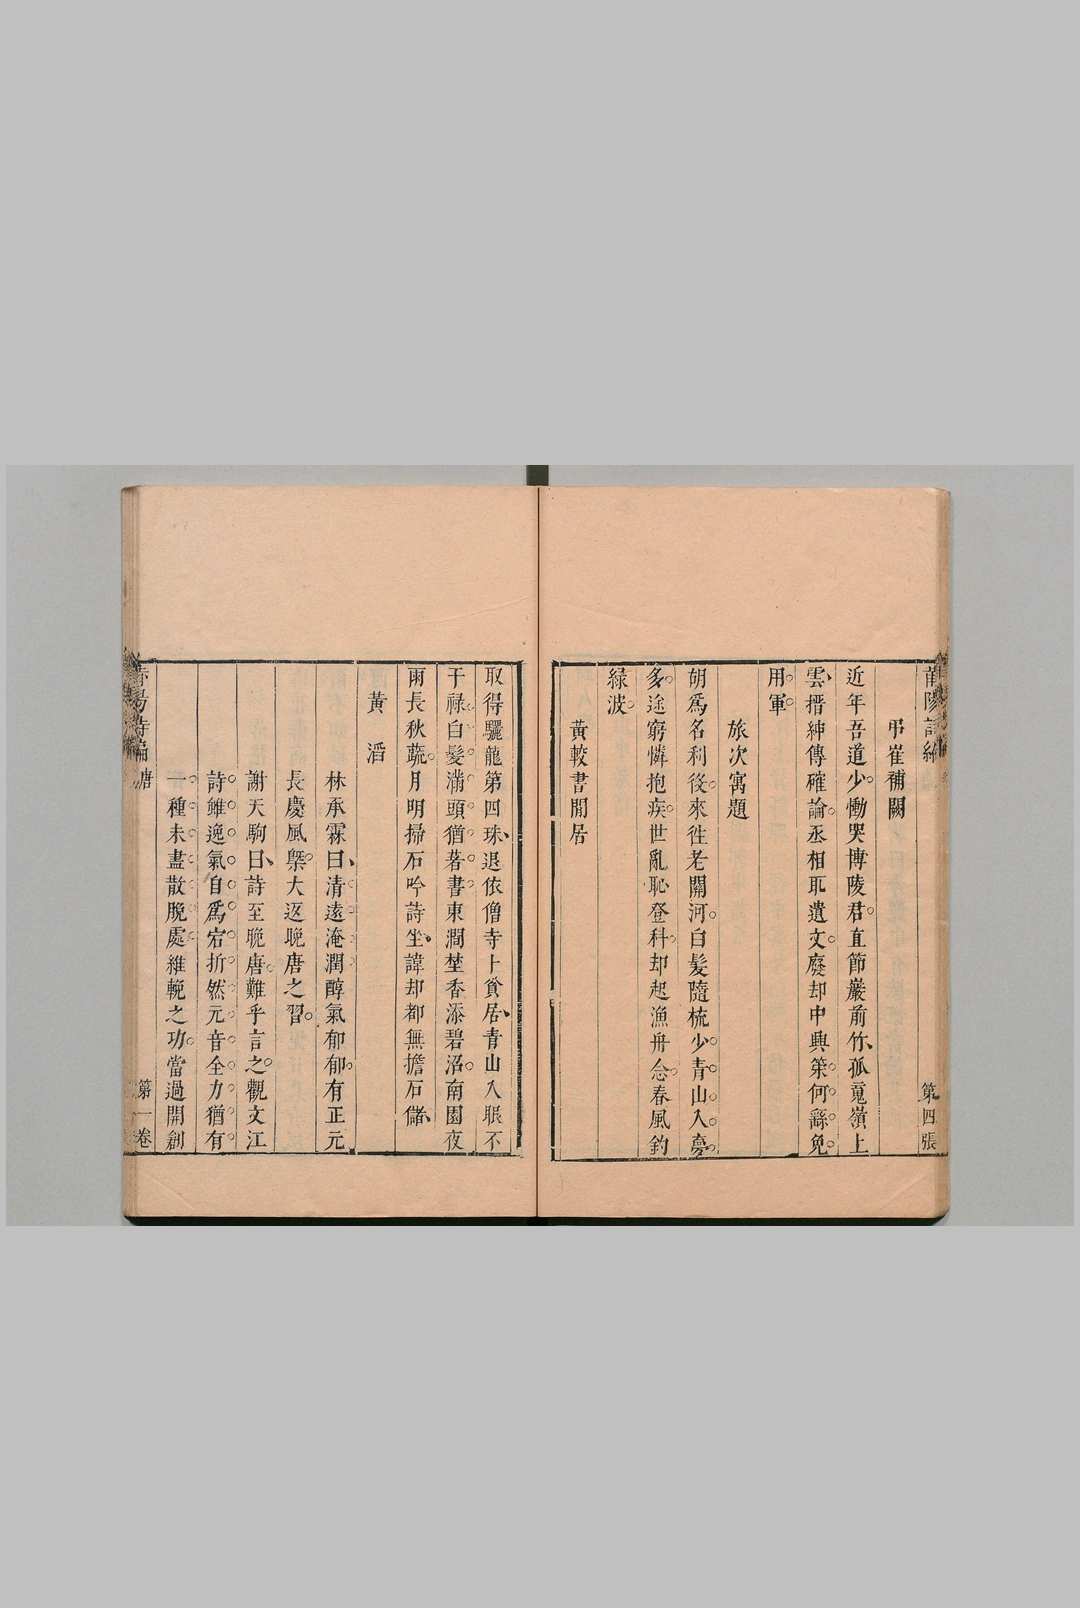 弔崔補闕
近年吾道少慟哭博陵君直節嚴前竹孤䰟嶺上
雲搢紳傳確論丞相耴遺文廢却中興策何繇免
用軍
旅次寓題
胡爲名利役來徃老關河白髮隨梳少青山入夢
多途窮憐抱疾世亂恥登科却起漁舟念春風釣
緑波
黃較書閒居
第四張
取得驪龍第四珠退依僧寺卜貧居青山入眼不
干祿白髮滿頭猶著書東澗埜香添碧沼南園夜
雨長秋蔬月明掃石吟詩坐諱却都無擔石儲
黃滔
林承霖曰清遠淹潤醇氣郁郁有正元
長慶風槩大返晚唐之習
謝天駒曰詩至晚唐難乎言之觀文江
詩雖逸氣自爲宕折然元音全力猶有
一種未盡散脫處維輓之功當過開創
唐
第一卷